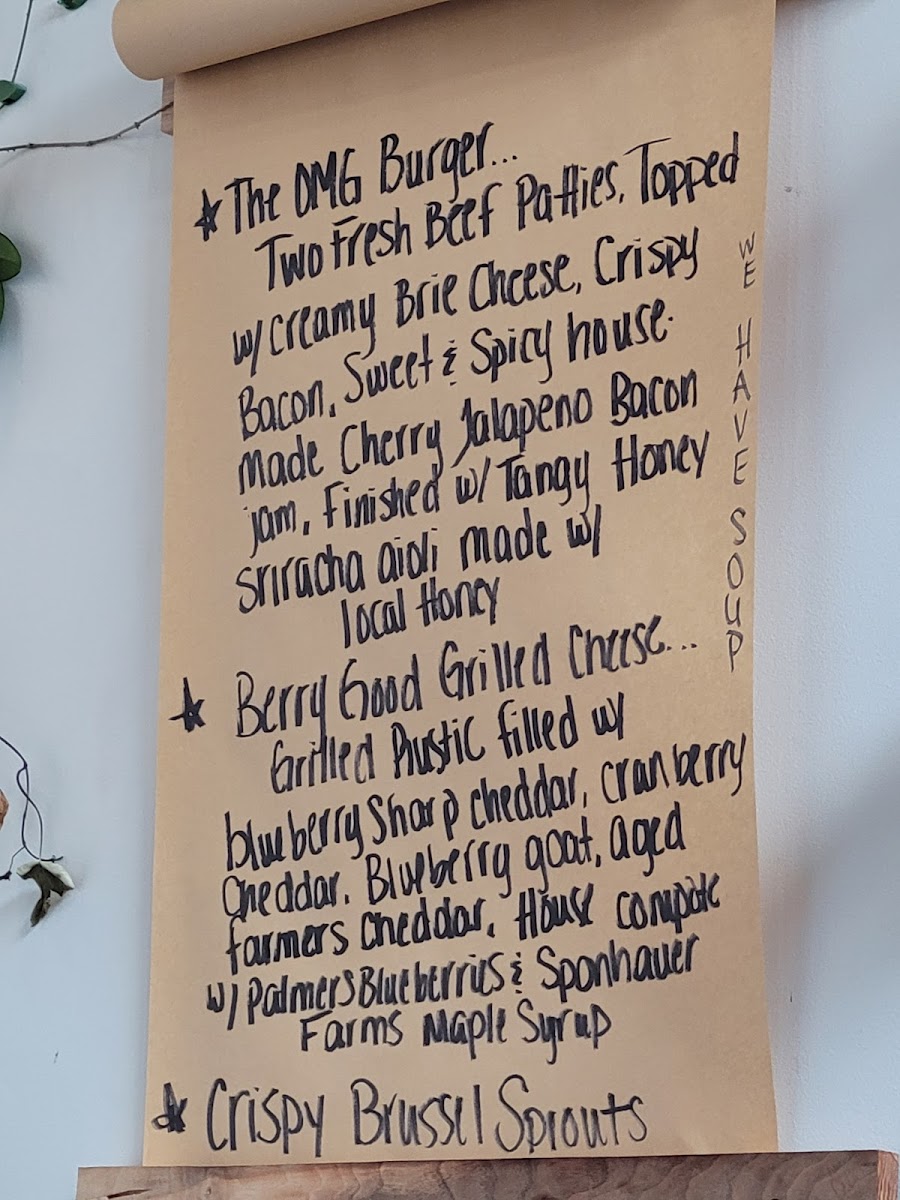 ★ The OMG Burger...
Two Fresh Beef Patties, Topped
w/ Creamy Brie Cheese, Crispy
Bacon, Sweet & Spicy house-
made Cherry Jalapeno Bacon
jam, Finished w/ Tangy Honey
sriracha aioli made w/
local Honey
★ Berry Good Grilled Cheese...
Grilled Rustic filled w/
blueberry Sharp cheddar, cranberry
Cheddar, Blueberry goat, aged
farmers cheddar, House compote
w/ Palmers Blueberries & Sponhauer
Farms Maple Syrup
★ Crispy Brussel Sprouts
WE HAVE SOUP